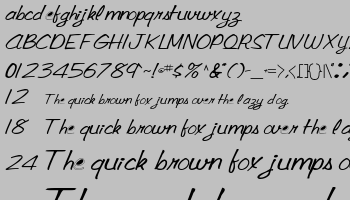 abcdefghijklmnopqrstuvwxyz
ABCDEFGHIJKLMNOPQRSTUVWXY
0123456789~!@#$%^&*()-_+=>,<[]{}/\|:;
12 The quick brown fox jumps over the lazy dog.
18 The quick brown fox jumps over the la
24 The quick brown fox jumps o
The quick brown